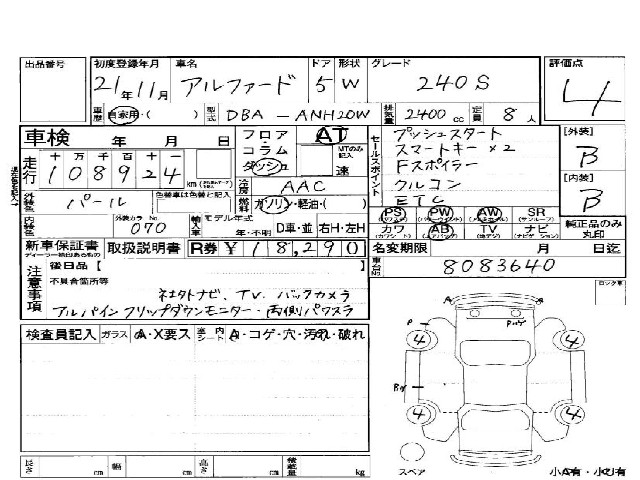 出品番号
初度登録年月 車名 ドア 形状 グレード 評価点
21年11月 アルファード 5 W 240S 4
車歴 自家用・( ) 型式 DBA-ANH20W 排気量 2400cc 定員 8人
車検 年 月 日
フロア コラム ダッシュ
AT
MTのみ記入
速
セールスポイント
プッシュスタート
スマートキー×2
Fスポイラー
クルコン
ETC
[外装]
B
[内装]
B
走行 十万千百十一
108924 km
冷房 AAC
外装色 パール 色替車は色替と記入
燃料 ガソリン・軽油・( )
PS PW AW SR
カワ AB TV ナビ
純正品のみ丸印
内装色 外装カラーNo. 070
輸入車 モデル年式 年・不明 D車・並 右H・左H
新車保証書 取扱説明書 R券 ¥18,290
名変期限 月 日迄
車台No. 8083640
注意事項
後日品【
不具合箇所等
社外ナビ、TV、バックカメラ
アルパインフリップダウンモニター・両側パワスラ
ロック車
検査員記入 ガラス A・X要ス 室内シート A・コゲ・穴・汚れ・破れ
P
4
4
4
4
スペア
小A有・小U有
長さ cm 幅 cm 高さ cm 積載量 kg